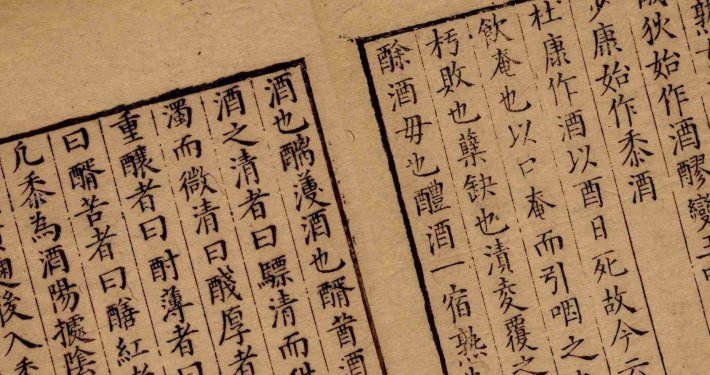 熟
狄始作酒醪變五
少康始作黍酒
杜康作酒以酉日死故今云
飲庵也以口庵而引咽之
朽敗也蘖缺也漬麥覆之
酴酒母也醴酒一宿熟也
酒也醨薄酒也醑莤酒
酒之清者曰醥清而甜
濁而微清曰醆厚者
重釀者曰酎薄者曰
曰醑苦者曰紅者
凡黍為酒陽據陰
麴後入黍